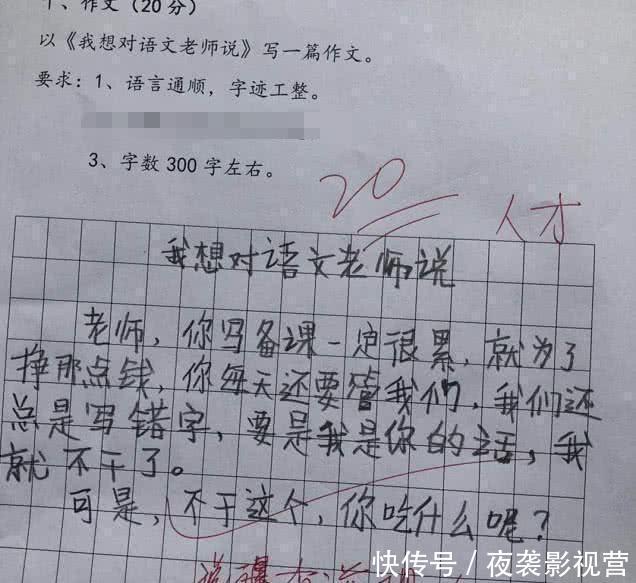 十、作文（20分）
以《我想对语文老师说》写一篇作文。
要求：1、语言通顺，字迹工整。
3、字数300字左右。
20
人才
我想对语文老师说
老师，你写备课一定很累，就为了
挣那点钱，你每天还要管我们，我们还
总是写错字，要是我是你的话，我
就不干了。
可是，不干这个，你吃什么呢？
快传号／夜袭影视营